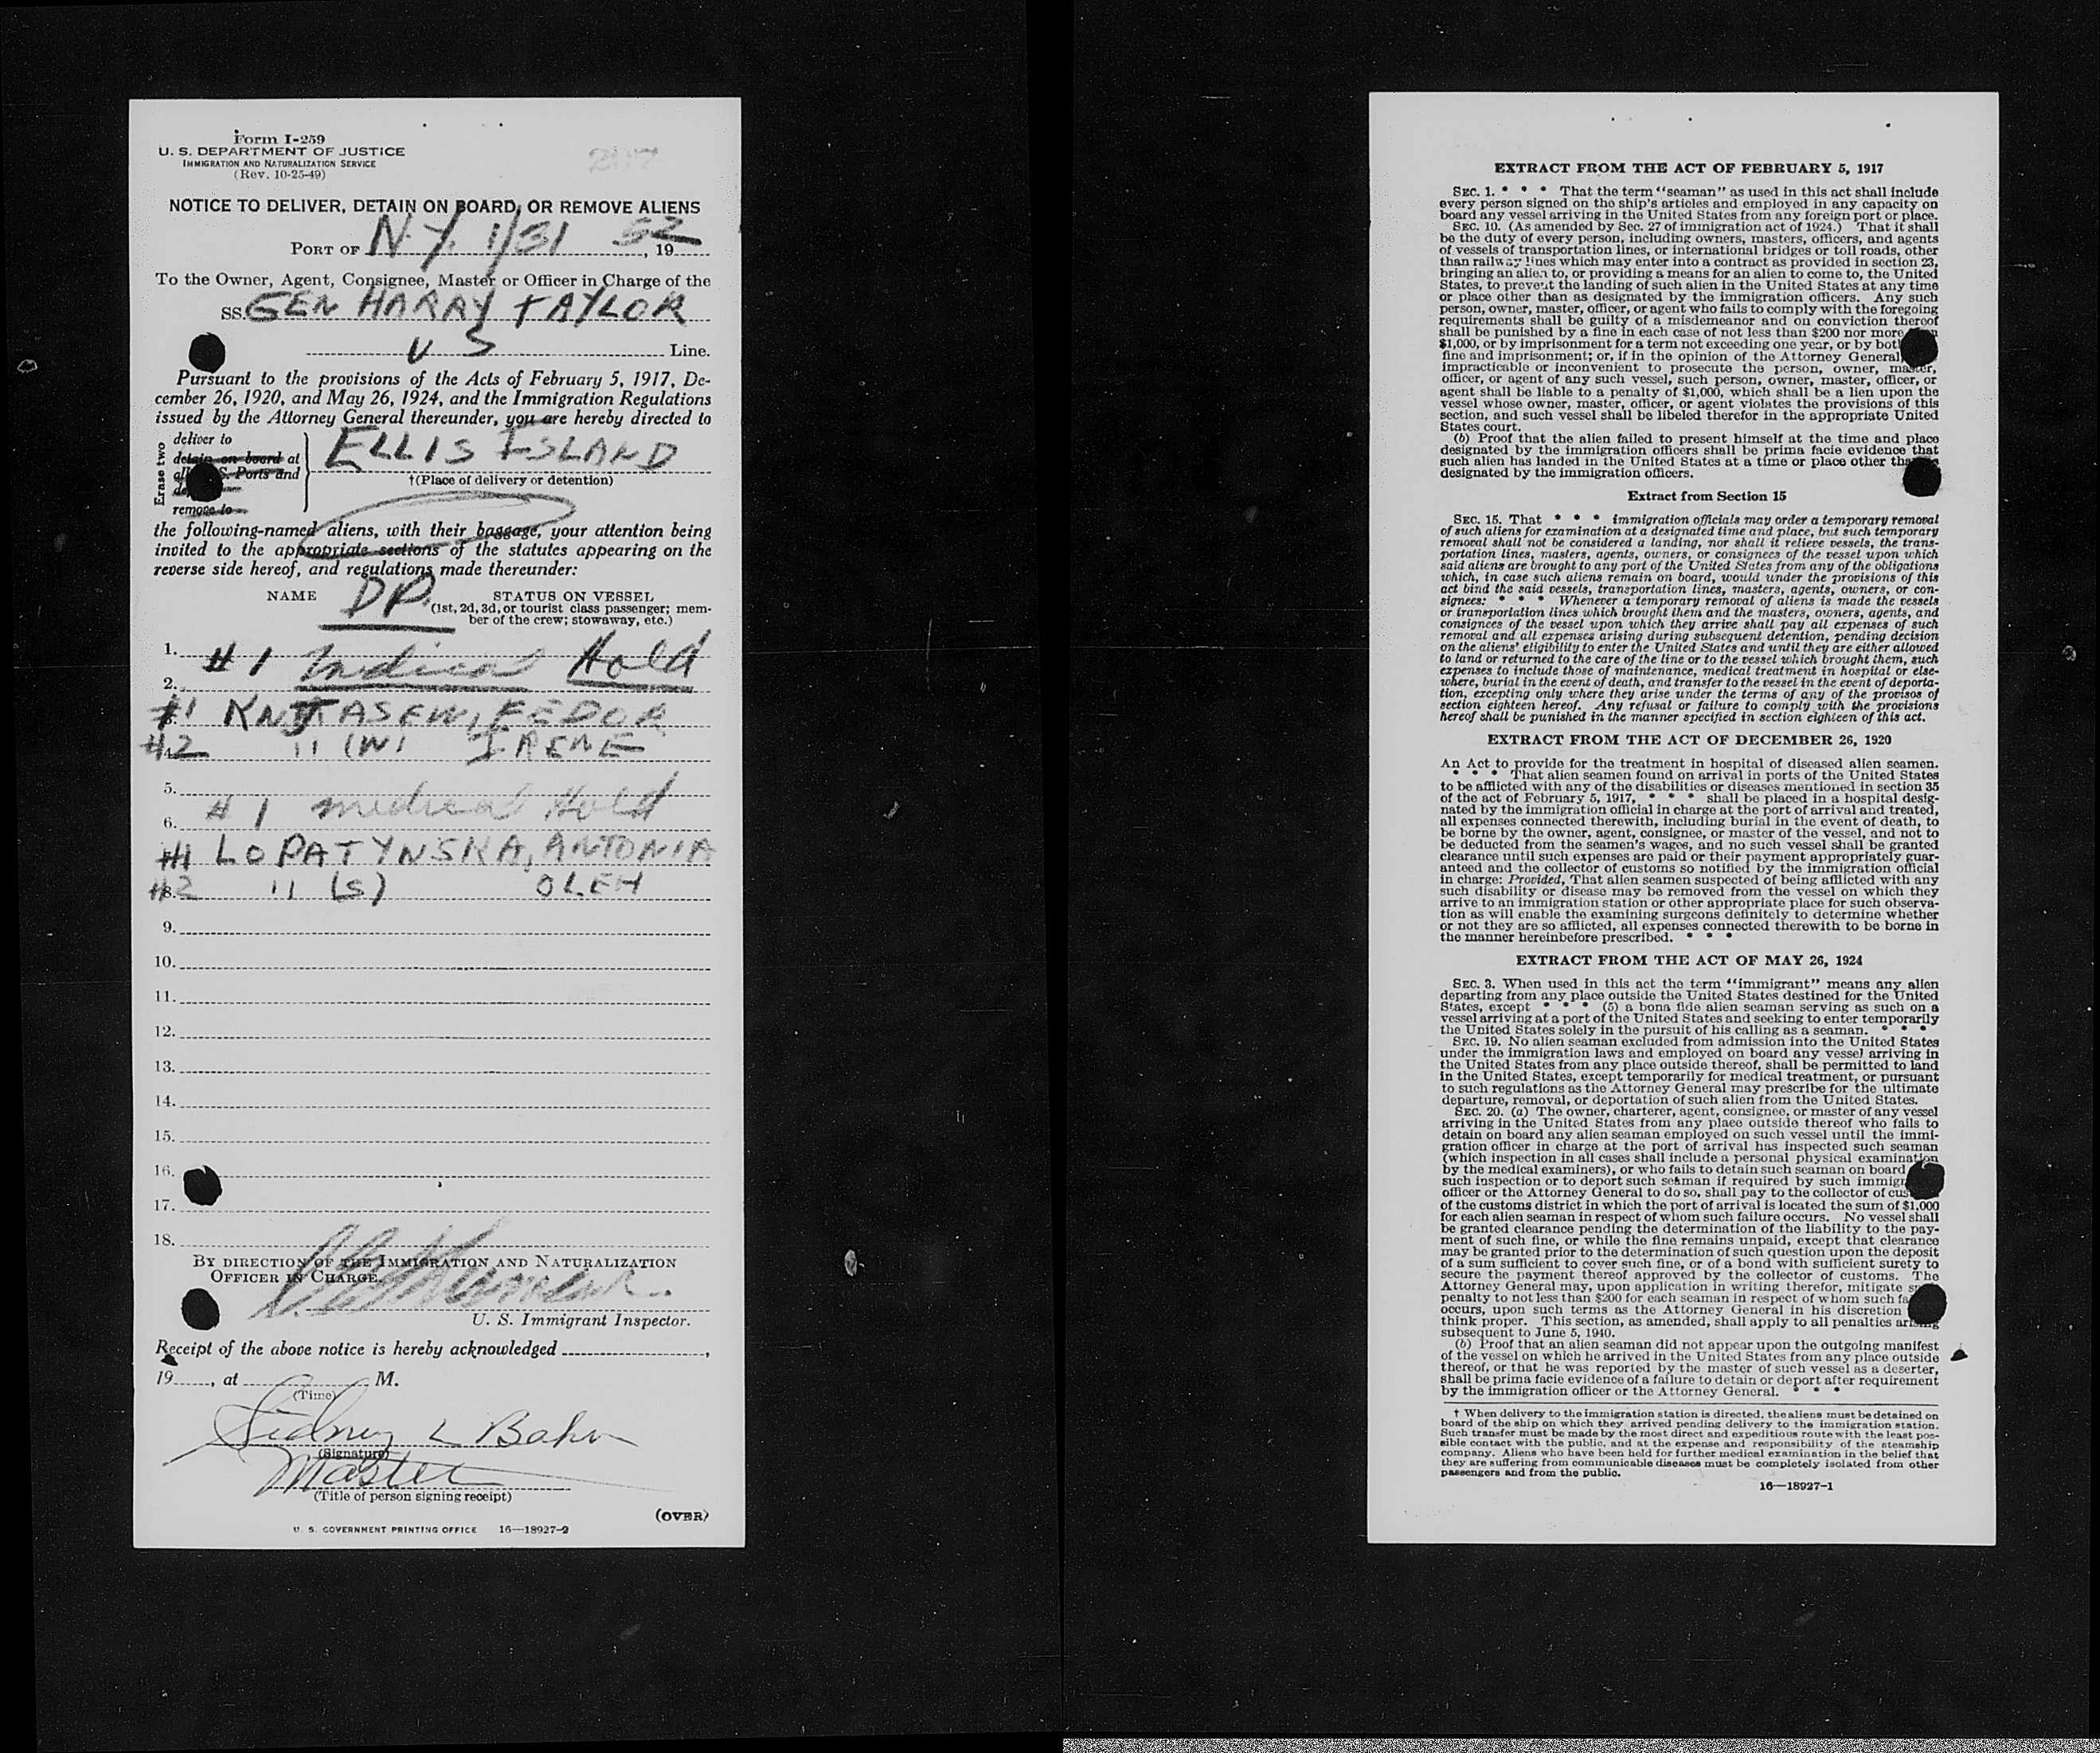 Form I-259
U. S. DEPARTMENT OF JUSTICE
IMMIGRATION AND NATURALIZATION SERVICE
(Rev. 10-25-49)
NOTICE TO DELIVER, DETAIN ON BOARD, OR REMOVE ALIENS
PORT OF N.Y. 1/31 52, 19
To the Owner, Agent, Consignee, Master or Officer in Charge of the
SS. GEN HARRY TAYLOR
U S Line.
Pursuant to the provisions of the Acts of February 5, 1917, De-
cember 26, 1920, and May 26, 1924, and the Immigration Regulations
issued by the Attorney General thereunder, you are hereby directed to
Erase two
deliver to
detain on board at
S. Ports and
remove to
ELLIS ISLAND
†(Place of delivery or detention)
the following-named aliens, with their baggage, your attention being
invited to the appropriate sections of the statutes appearing on the
reverse side hereof, and regulations made thereunder:
NAME DP. STATUS ON VESSEL
(1st, 2d, 3d, or tourist class passenger; mem-
ber of the crew; stowaway, etc.)
1. #1 Medical Hold
2.
#1 FEDOR
#2 11 (W) IRENE
5.
#1 medical Hold
6.
#1 LOPATYNSKA, ANTONIA
#2 11 (S) OLEH
9.
10.
11.
12.
13.
14.
15.
16.
17.
18.
BY DIRECTION OF THE IMMIGRATION AND NATURALIZATION
OFFICER IN CHARGE.
U. S. Immigrant Inspector.
Receipt of the above notice is hereby acknowledged ,
19 , at M.
(Time)
Sidney L Bahn
(Signature)
Master
(Title of person signing receipt)
(OVER)
U. S. GOVERNMENT PRINTING OFFICE 16—18927-2
EXTRACT FROM THE ACT OF FEBRUARY 5, 1917
SEC. 1. * * * That the term "seaman" as used in this act shall include
every person signed on the ship's articles and employed in any capacity on
board any vessel arriving in the United States from any foreign port or place.
SEC. 10. (As amended by Sec. 27 of immigration act of 1924.) That it shall
be the duty of every person, including owners, masters, officers, and agents
of vessels of transportation lines, or international bridges or toll roads, other
than railway lines which may enter into a contract as provided in section 23,
bringing an alien to, or providing a means for an alien to come to, the United
States, to prevent the landing of such alien in the United States at any time
or place other than as designated by the immigration officers. Any such
person, owner, master, officer, or agent who fails to comply with the foregoing
requirements shall be guilty of a misdemeanor and on conviction thereof
shall be punished by a fine in each case of not less than $200 nor more
$1,000, or by imprisonment for a term not exceeding one year, or by both
fine and imprisonment; or, if in the opinion of the Attorney General,
impracticable or inconvenient to prosecute the person, owner, master,
officer, or agent of any such vessel, such person, owner, master, officer, or
agent shall be liable to a penalty of $1,000, which shall be a lien upon the
vessel whose owner, master, officer, or agent violates the provisions of this
section, and such vessel shall be libeled therefor in the appropriate United
States court.
(b) Proof that the alien failed to present himself at the time and place
designated by the immigration officers shall be prima facie evidence that
such alien has landed in the United States at a time or place other
designated by the immigration officers.
Extract from Section 15
SEC. 15. That * * * immigration officials may order a temporary removal
of such aliens for examination at a designated time and place, but such temporary
removal shall not be considered a landing, nor shall it relieve vessels, the trans-
portation lines, masters, agents, owners, or consignees of the vessel upon which
said aliens are brought to any port of the United States from any of the obligations
which, in case such aliens remain on board, would under the provisions of this
act bind the said vessels, transportation lines, masters, agents, owners, or con-
signees: * * * Whenever a temporary removal of aliens is made the vessels
or transportation lines which brought them and the masters, owners, agents, and
consignees of the vessel upon which they arrive shall pay all expenses of such
removal and all expenses arising during subsequent detention, pending decision
on the aliens' eligibility to enter the United States and until they are either allowed
to land or returned to the care of the line or to the vessel which brought them, such
expenses to include those of maintenance, medical treatment in hospital or else-
where, burial in the event of death, and transfer to the vessel in the event of deporta-
tion, excepting only where they arise under the terms of any of the provisos of
section eighteen hereof. Any refusal or failure to comply with the provisions
hereof shall be punished in the manner specified in section eighteen of this act.
EXTRACT FROM THE ACT OF DECEMBER 26, 1920
An Act to provide for the treatment in hospital of diseased alien seamen.
* * * That alien seamen found on arrival in ports of the United States
to be afflicted with any of the disabilities or diseases mentioned in section 35
of the act of February 5, 1917, * * * shall be placed in a hospital desig-
nated by the immigration official in charge at the port of arrival and treated,
all expenses connected therewith, including burial in the event of death, to
be borne by the owner, agent, consignee, or master of the vessel, and not to
be deducted from the seamen's wages, and no such vessel shall be granted
clearance until such expenses are paid or their payment appropriately guar-
anteed and the collector of customs so notified by the immigration official
in charge: Provided, That alien seamen suspected of being afflicted with any
such disability or disease may be removed from the vessel on which they
arrive to an immigration station or other appropriate place for such observa-
tion as will enable the examining surgeons definitely to determine whether
or not they are so afflicted, all expenses connected therewith to be borne in
the manner hereinbefore prescribed. * * *
EXTRACT FROM THE ACT OF MAY 26, 1924
SEC. 3. When used in this act the term "immigrant" means any alien
departing from any place outside the United States destined for the United
States, except * * * (5) a bona fide alien seaman serving as such on a
vessel arriving at a port of the United States and seeking to enter temporarily
the United States solely in the pursuit of his calling as a seaman. * * *
SEC. 19. No alien seaman excluded from admission into the United States
under the immigration laws and employed on board any vessel arriving in
the United States from any place outside thereof, shall be permitted to land
in the United States, except temporarily for medical treatment, or pursuant
to such regulations as the Attorney General may prescribe for the ultimate
departure, removal, or deportation of such alien from the United States.
SEC. 20. (a) The owner, charterer, agent, consignee, or master of any vessel
arriving in the United States from any place outside thereof who fails to
detain on board any alien seaman employed on such vessel until the immi-
gration officer in charge at the port of arrival has inspected such seaman
(which inspection in all cases shall include a personal physical examination
by the medical examiners), or who fails to detain such seaman on board
such inspection or to deport such seaman if required by such
officer or the Attorney General to do so, shall pay to the collector of
of the customs district in which the port of arrival is located the sum of $1,000
for each alien seaman in respect of whom such failure occurs. No vessel shall
be granted clearance pending the determination of the liability to the pay-
ment of such fine, or while the fine remains unpaid, except that clearance
may be granted prior to the determination of such question upon the deposit
of a sum sufficient to cover such fine, or of a bond with sufficient surety to
secure the payment thereof approved by the collector of customs. The
Attorney General may, upon application in writing therefor, mitigate
penalty to not less than $200 for each seaman in respect of whom such
occurs, upon such terms as the Attorney General in his discretion
think proper. This section, as amended, shall apply to all penalties arising
subsequent to June 5, 1940.
(b) Proof that an alien seaman did not appear upon the outgoing manifest
of the vessel on which he arrived in the United States from any place outside
thereof, or that he was reported by the master of such vessel as a deserter,
shall be prima facie evidence of a failure to detain or deport after requirement
by the immigration officer or the Attorney General. * * *
† When delivery to the immigration station is directed, the aliens must be detained on
board of the ship on which they arrived pending delivery to the immigration station.
Such transfer must be made by the most direct and expeditious route with the least pos-
sible contact with the public, and at the expense and responsibility of the steamship
company. Aliens who have been held for further medical examination in the belief that
they are suffering from communicable diseases must be completely isolated from other
passengers and from the public.
16—18927-1